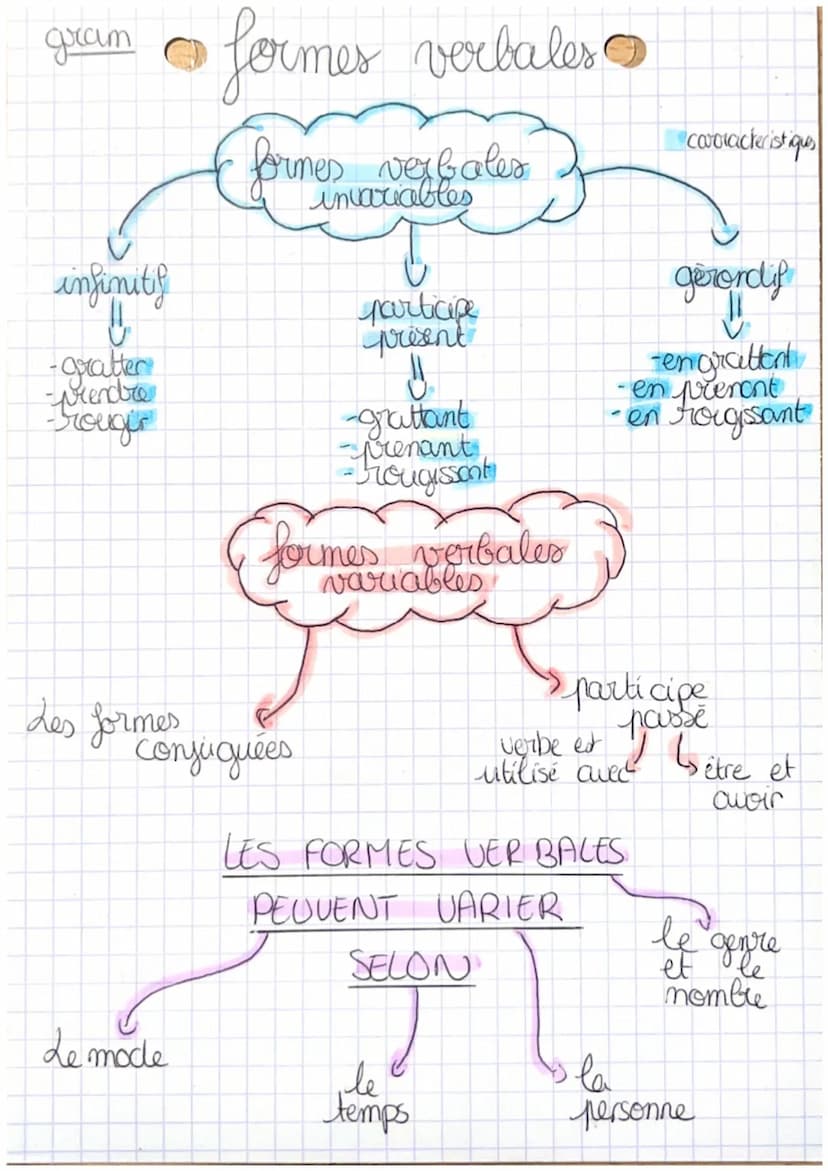 gram
formes verbales
caracteristiques
formes verbales
invariables
infinitif
-gratter
-prendre
-rougir
participe
présent
-grattant
-prenant
-rougissant
gérondif
-en grattant
-en prenant
-en rougissant
formes verbales
variables
Les formes
conjuguées
participe
passé
verbe est
utilisé avec
être et
avoir
LES FORMES VERBALES
PEUVENT VARIER
SELON
le genre
et le
nombre
Le mode
le
temps
la
personne